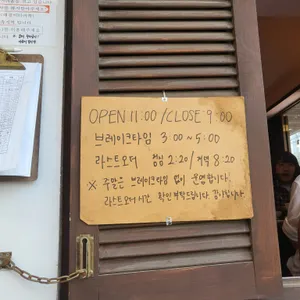 OPEN 11:00 / CLOSE 9:00
브레이크타임 3:00 ~ 5:00
라스트오더 점심 2:20 / 저녁 8:20
※ 주말은 브레이크타임 없이 운영합니다!
라스트오더 시간 확인 부탁드립니다. 감사합니다